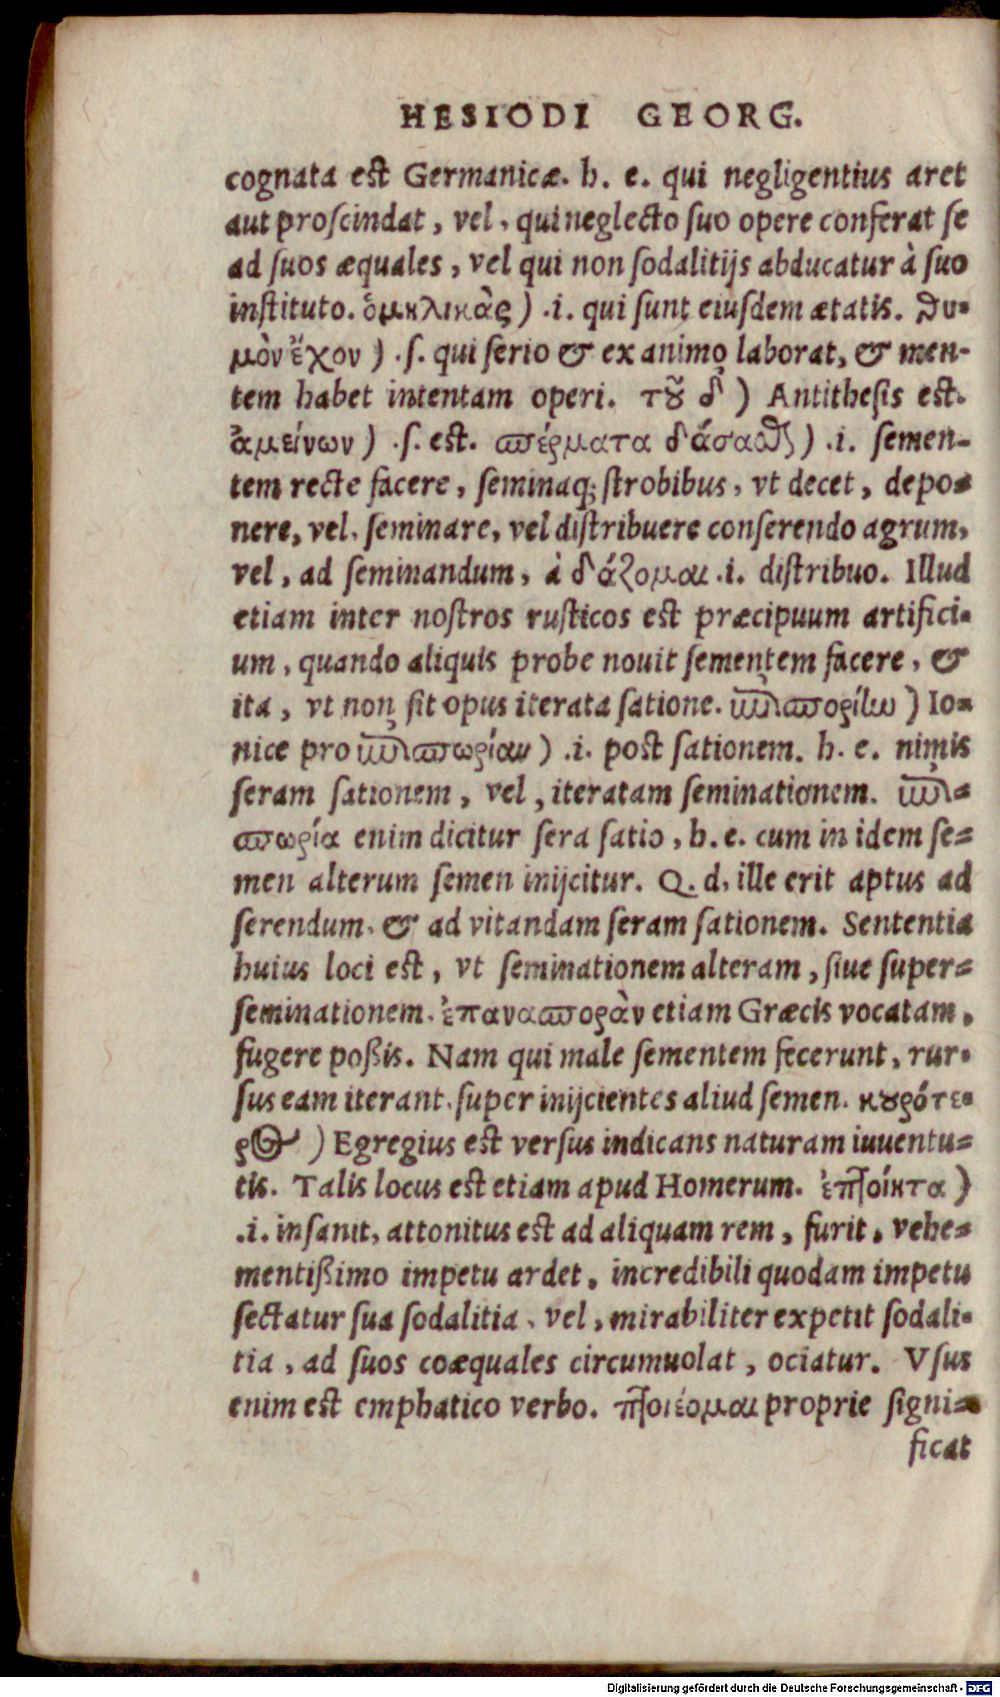 HESIODI GEORG.
cognata est Germanicæ. h. e. qui negligentius aret
aut proſcindat, vel, qui neglecto ſuo opere conferat ſe
ad ſuos æquales, vel qui non ſodalitijs abducatur à ſuo
inſtituto. ὁμηλικὰς) .i. qui ſunt eiuſdem ætatis. θυ-
μὸν ἔχον) .ſ. qui ſerio & ex animo laborat, & men-
tem habet intentam operi. τȣ͂ δ') Antitheſis est.
ἀμείνων) .ſ. est. σπέρματα δάσαϑς) .i. ſemen-
tem recte facere, ſeminaq; ſtrobibus, vt decet, depo-
nere, vel, ſeminare, vel diſtribuere conſerendo agrum,
vel, ad ſeminandum, à δάζομαι .i. diſtribuo. Illud
etiam inter noſtros ruſticos est præcipuum artifici-
um, quando aliquis probe nouit ſementem facere, &
ita, vt non ſit opus iterata ſatione. ἐπισπορίην) Io-
nice pro ἐπισπωρίαν) .i. poſt ſationem. h. e. nimis
ſeram ſationem, vel, iteratam ſeminationem. ἐπι-
σπωρία enim dicitur ſera ſatio, h. e. cum in idem ſe-
men alterum ſemen inijcitur. Q. d. ille erit aptus ad
ſerendum, & ad vitandam ſeram ſationem. Sententia
huius loci est, vt ſeminationem alteram, ſiue ſuper-
ſeminationem. ἐπανασπορὰν etiam Græcis vocatam,
fugere poßis. Nam qui male ſementem fecerunt, rur-
ſus eam iterant, ſuper inijcientes aliud ſemen. κȣρότε-
ρος) Egregius est verſus indicans naturam iuuentu-
tis. Talis locus est etiam apud Homerum. ἐπτοίητα)
.i. inſanit, attonitus est ad aliquam rem, furit, vehe-
mentißimo impetu ardet, incredibili quodam impetu
ſectatur ſua ſodalitia, vel, mirabiliter expetit ſodali-
tia, ad ſuos coæquales circumuolat, ociatur. Vſus
enim est emphatico verbo. πτοιέομαι proprie ſigni-
ficat
Digitalisierung gefördert durch die Deutsche Forschungsgemeinschaft - DFG